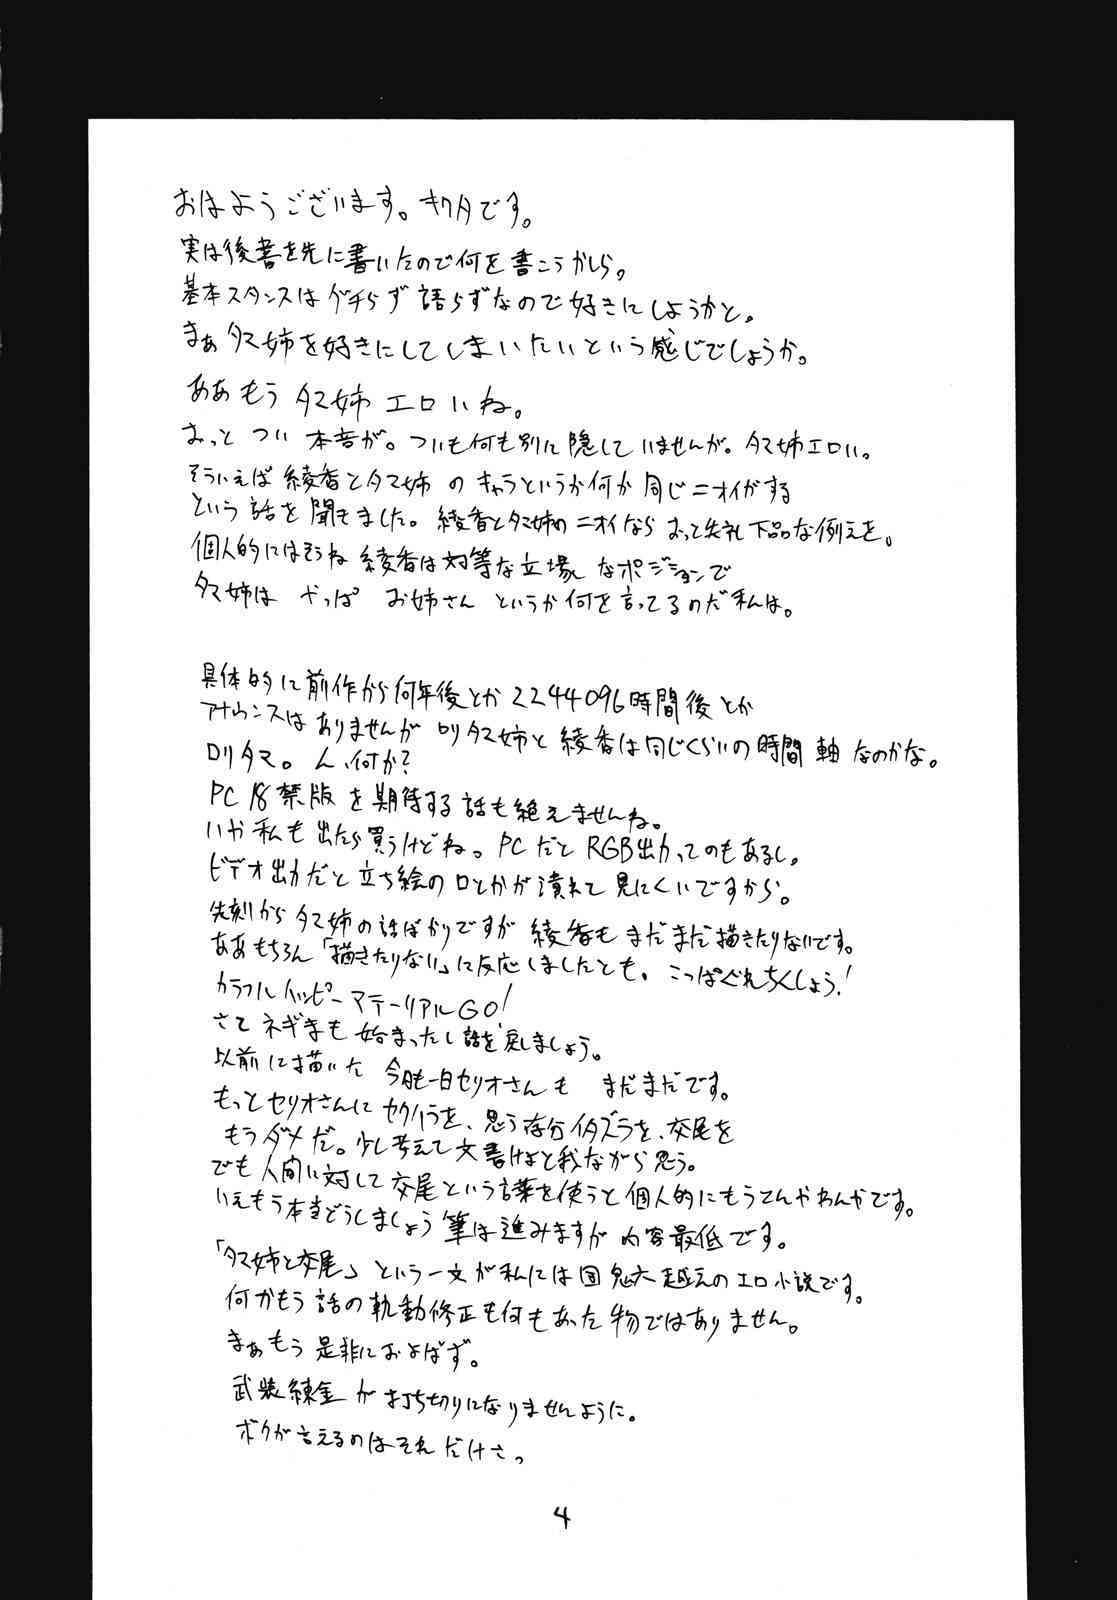 おはようございます。キクタです。
実は後書を先に書いたので何を書こうかしら。
基本スタンスはグチらず語らずなので好きにしようかと。
まぁタマ姉を好きにしてしまいたいという感じでしょうか。
ああもうタマ姉エロいね。
おっとつい本音が。ついも何も別に隠していませんが。タマ姉エロい。
そういえば綾香とタマ姉のキャラというか何か同じニオイがする
という話を聞きました。綾香とタマ姉のニオイならおっと失礼下品な例えを。
個人的にはそうね綾香は対等な立場なポジションで
タマ姉はやっぱお姉さんというか何を言ってるのだ私は。
具体的に前作から何年後とか2244096時間後とか
アナウンスはありませんがロリタマ姉と綾香は同じくらいの時間軸なのかな。
ロリタマ。ん、何か?
PC18禁版を期待する話も絶えませんね。
いや私も出たら買うけどね。PCだとRGB出力ってのもあるし。
ビデオ出力だと立ち絵の口とかが潰れて見にくいですから。
先刻からタマ姉の話ばかりですが綾香もまだまだ描きたりないです。
ああもちろん「描きたりない」に反応しましたとも。こっぱぐれちくしょう!
カラフルハッピーマテーリアルGO!
さてネギまも始まったし話を戻しましょう。
以前に描いた今日も一日セリオさんもまだまだです。
もっとセリオさんにセクハラを、思う存分イタズラを、交尾を
もうダメだ。少し考えて文書けよと我ながら思う。
でも人間に対して交尾という言葉を使うと個人的にもうてんやわんやです。
いえもう本当どうしましょう筆は進みますが内容最低です。
「タマ姉と交尾」という一文が私には団鬼六越えのエロ小説です。
何かもう話の軌動修正も何もあった物ではありません。
まぁもう是非におよばず。
武装練金が打ち切りになりませんように。
ボクが言えるのはそれだけさ。
4